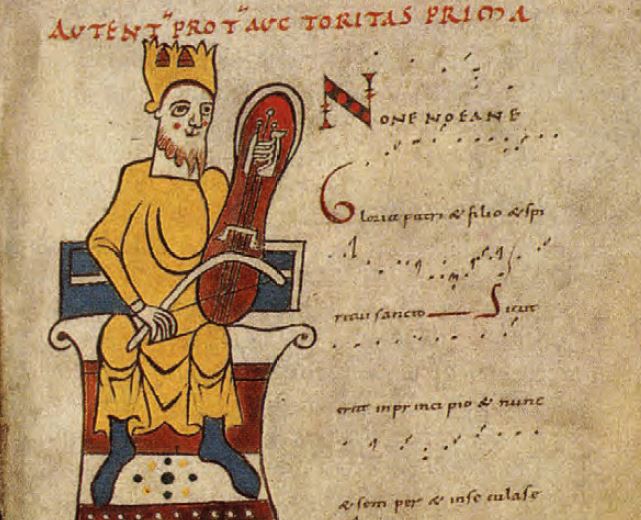 AUTENTꝰ PROTꝰ AUCTORITAS PRIMA
NONENOEANE
Gloria patri & filio & spi
ritui sancto Sicut
erat inprincipio & nunc
& semper & inse culase